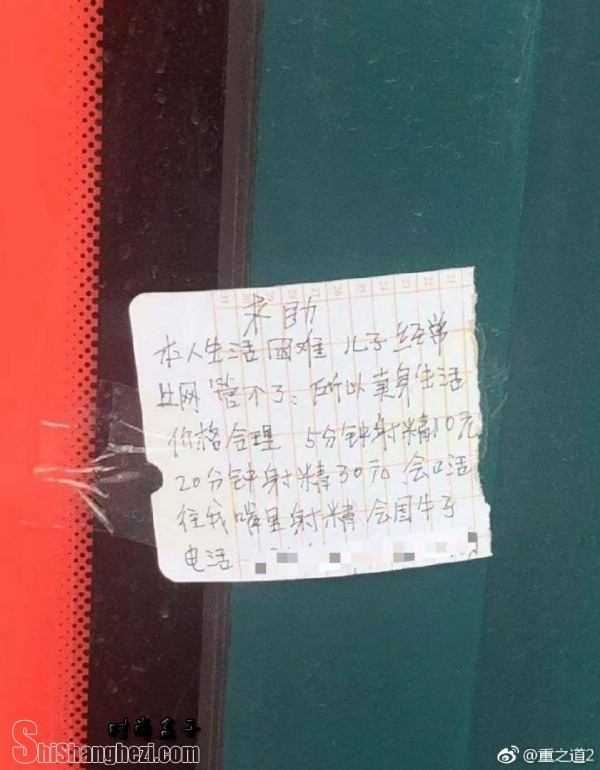 求助
本人生活困难 儿子经常
上网 管不了。所以卖身生活
价格合理 5分钟射精10元
20分钟射精30元 会口活
往我嘴里射精 会国牛子
电话
时尚盒子
Shishanghezi.com
@重之道2